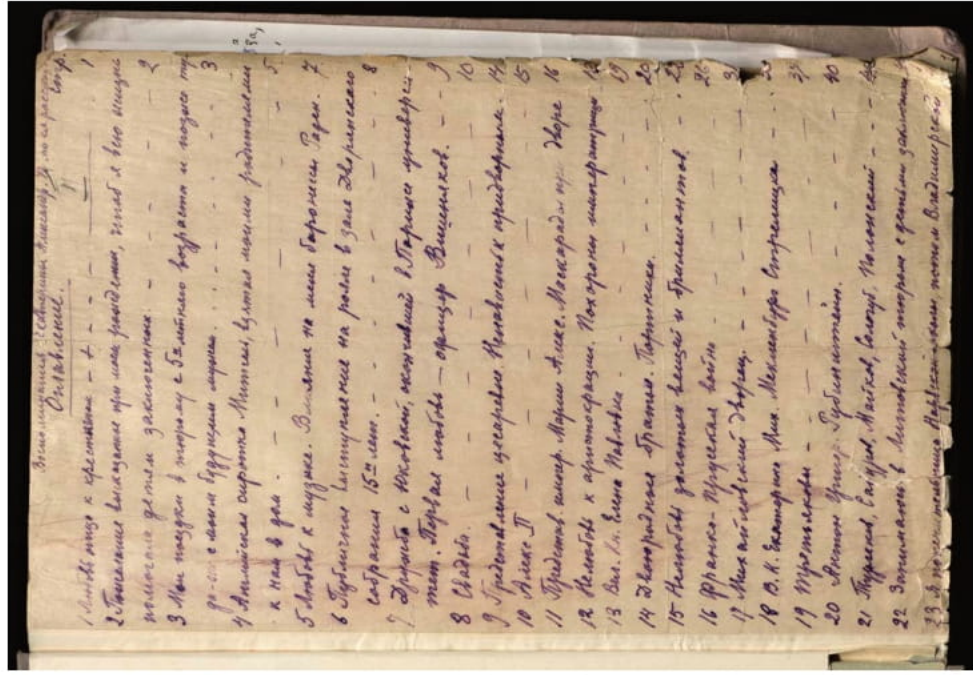 Воспоминания
Оглавление. стр.
1 Любовь отца к крестьянам 1
2 Желание высказанное при моем рождении, чтоб я всю жизнь
помогала детям заключенных. 2
3 Мои поездки в тюрьму с 8ми летнего возраста и позднее
с моим будущим мужем. 3
4 Английская сиротка взятая моими родителями
к нам в дом. 5
5 Любовь к музыке. Влияние на меня баронессы Раден. 7
6 Публичное выступление на рояле в зале Дворянского
собрания 15ти лет. 8
7 Дружба с окончившей в Париже университет.
Первая любовь — офицер Вишняков. 9
8 Свадьба. 10
9 Представление цесаревне. Ненависть к придворным. 14
10 Алекс. II 15
11 Представ. импер. Марии Алекс. Маскарады при дворе 16
12 Нелюбовь к аристокрации. Похороны императрицы 18
13 Вел. Кн. Елена Павловна 19
14 Двоюродные братья. 20
15 Нелюбовь золотых вещей и бриллиантов. 22
16 Франко-Прусская война 26
17 Михайловский дворец.
18 В. К. Екатерина Мих. Мекленбург Стрелицкая
19
20 Антон Григор. Рубинштейн. 40
21 Тургенев, Майков, Сологуб, Полонский
22 Занимаюсь в Литовской тюрьме с детьми заключен
23